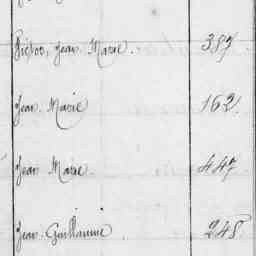 Jean Marie. 387
Jean Marie 162.
Jean Marie. 447.
Jean Guillaume 248.